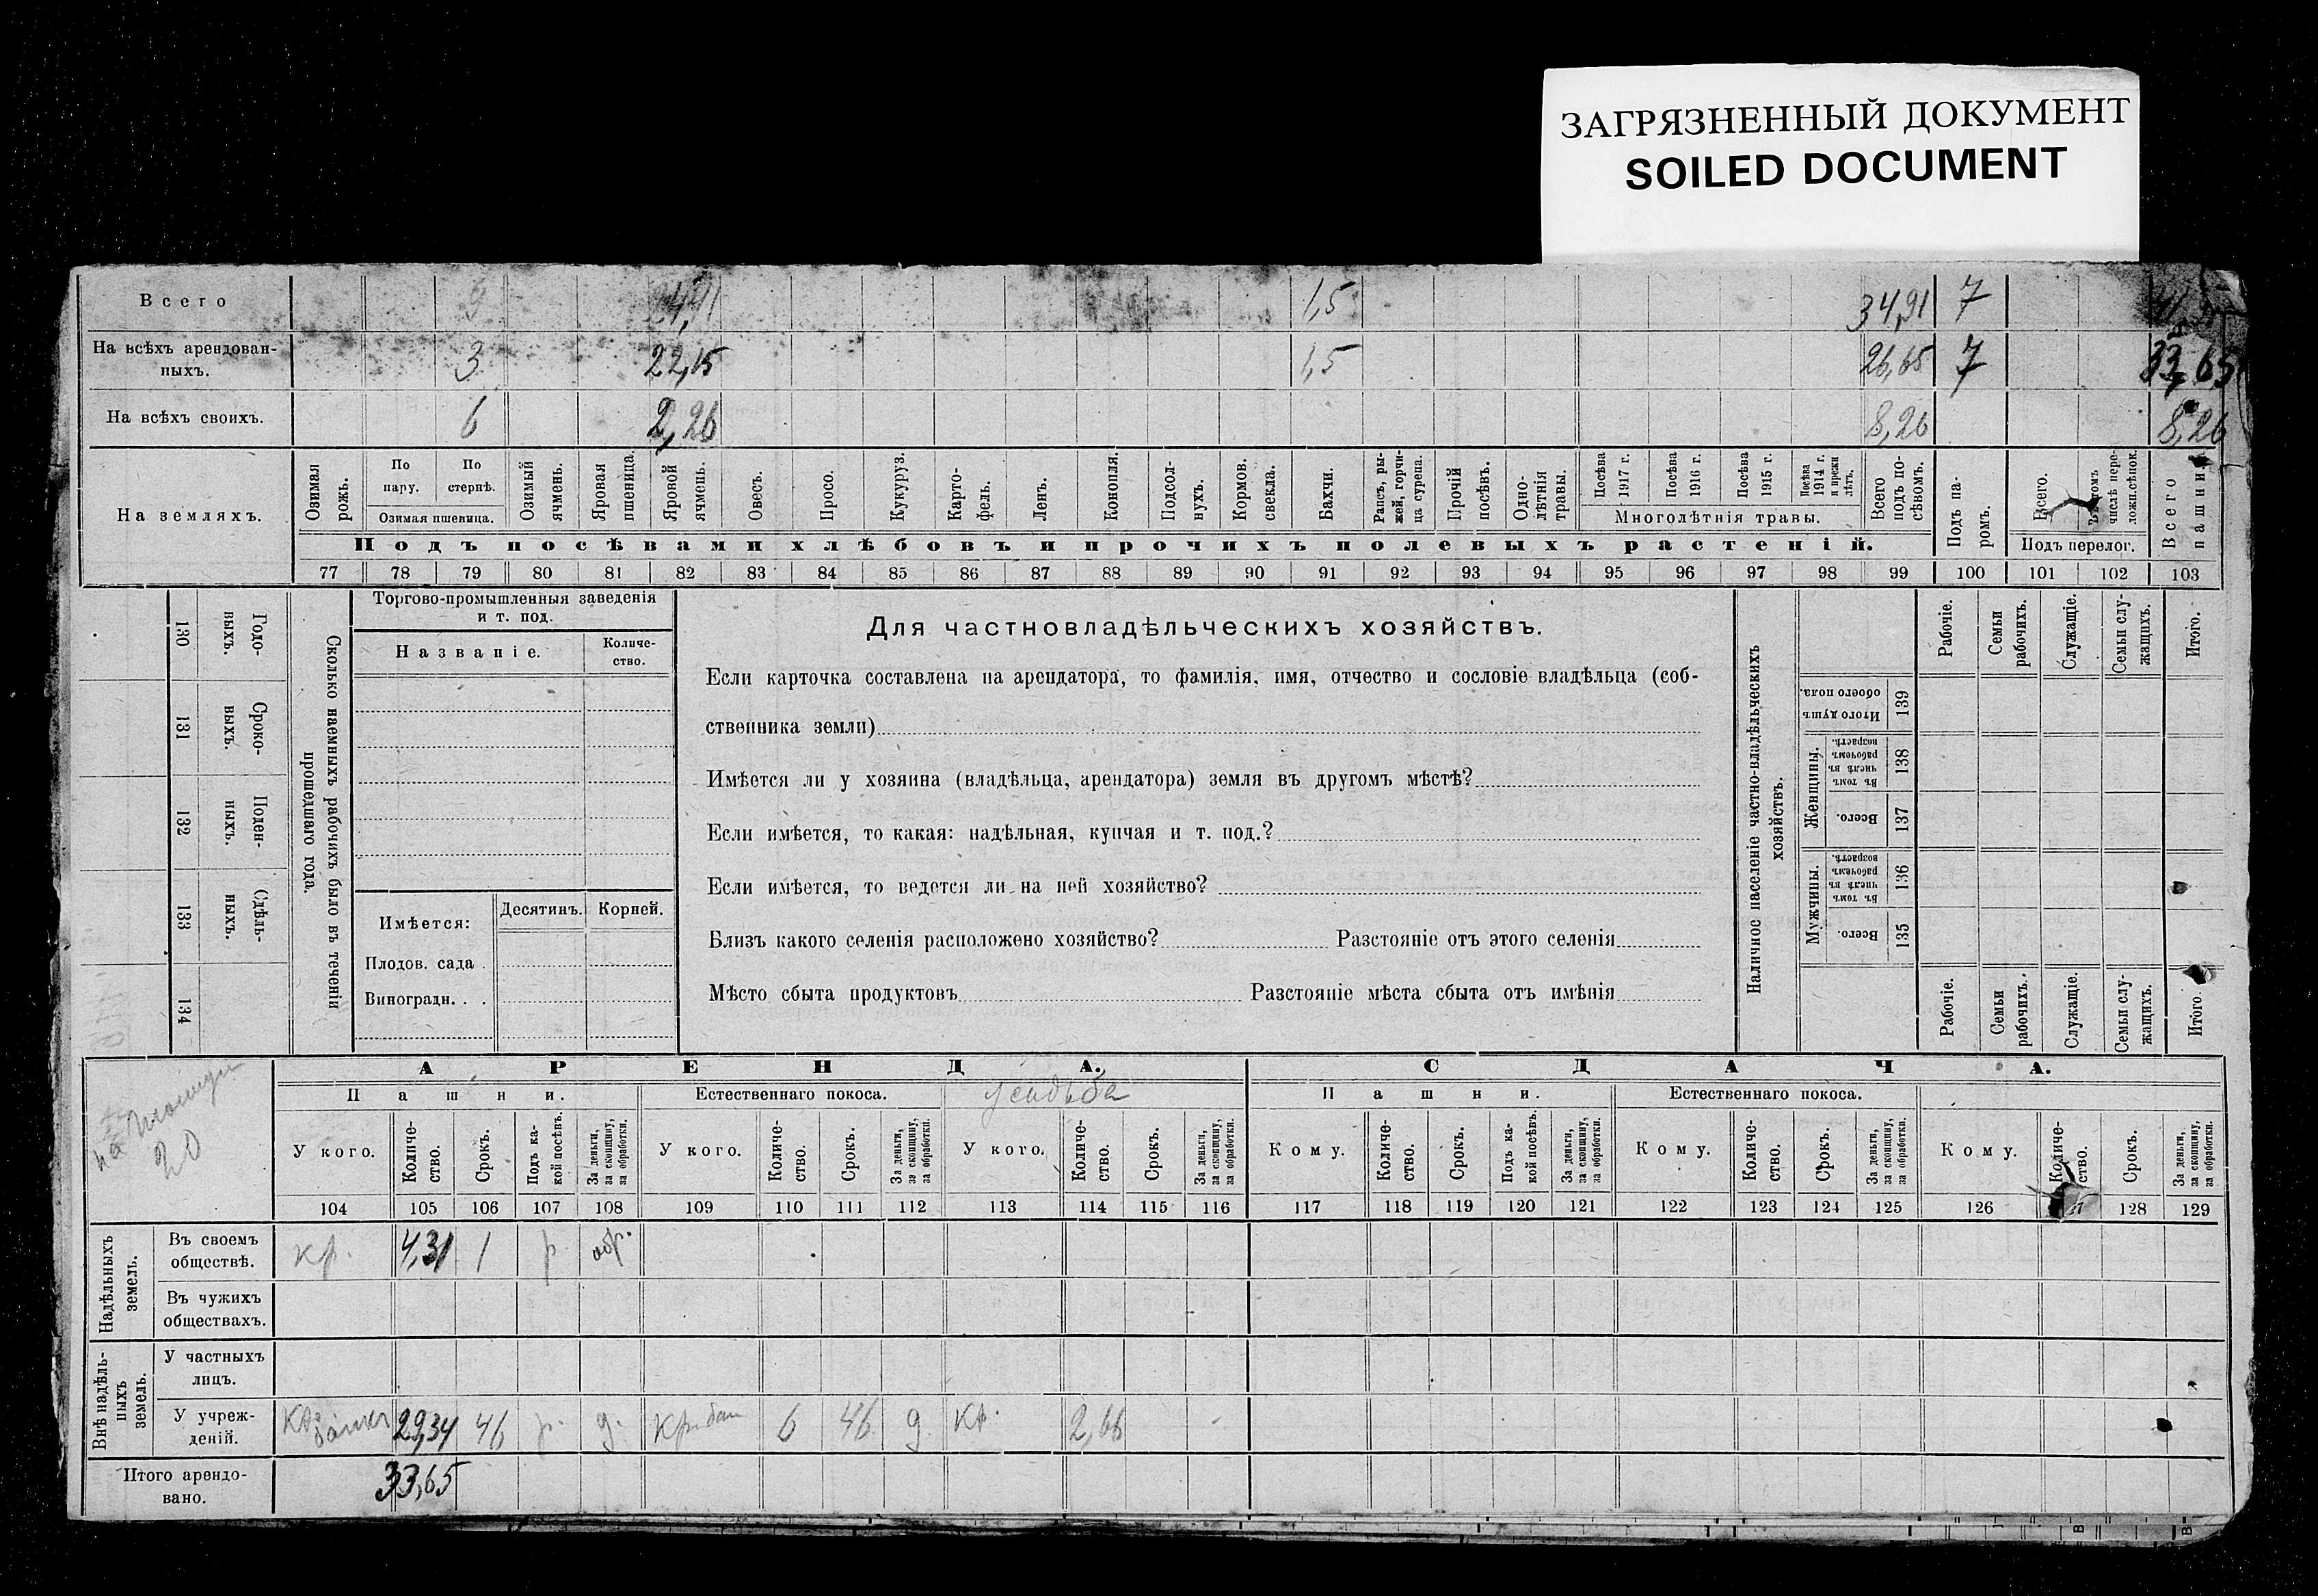 ЗАГРЯЗНЕННЫЙ ДОКУМЕНТ
SOILED DOCUMENT
Всего 1,5 34,91 7
На всѣхъ арендован-
ныхъ. 3 22,15 1,5 26,65 7 33,65
На всѣхъ своихъ. 6 2,26 8,26 8,26
На земляхъ.
Озимая рожь.
По пару.
По стернѣ.
Озимая пшеница.
Озимый ячмень.
Яровая пшеница.
Яровой ячмень.
Овесъ.
Просо.
Кукуруз.
Карто-
фель.
Ленъ.
Конопля.
Подсол-
нухъ.
Кормов. свекла.
Бахчи.
Рапсъ, ры-
жей, горчи-
ца сурепа.
Прочій посѣвъ.
Одно-
лѣтнія травы.
Посѣва 1917 г.
Посѣва 1916 г.
Посѣва 1915 г.
Посѣва 1914 г. и прежн лѣтъ.
Многолѣтнія травы.
Всего подъ по-
сѣвомъ.
Подъ па-
ромъ.
Всего.
числѣ пере-
ложн.сѣнок.
Подъ перелог.
Всего пашни.
Подъ посѣвами хлѣбовъ и прочихъ полевыхъ растеній.
77 78 79 80 81 82 83 84 85 86 87 88 89 90 91 92 93 94 95 96 97 98 99 100 101 102 103
Годо-
выхъ.
130
Сроко-
выхъ.
131
Поден-
ныхъ.
132
Сдѣль-
ныхъ.
133
134
Сколько наемныхъ рабочихъ было въ теченіи
прошедшаго года.
Торгово-промышленныя заведенія
и т. под.
Названіе.
Количе-
ство.
Имѣется: Десятинъ. Корней.
Плодов. сада .
Виноградн. . .
Для частновладѣльческихъ хозяйствъ.
Если карточка составлена на арендатора, то фамилія, имя, отчество и сословіе владѣльца (соб-
ственника земли)
Имѣется ли у хозяина (владѣльца, арендатора) земля въ другомъ мѣстѣ?
Если имѣется, то какая: надѣльная, купчая и т. под.?
Если имѣется, то ведется ли на ней хозяйство?
Близъ какого селенія расположено хозяйство? Разстояніе отъ этого селенія
Мѣсто сбыта продуктовъ Разстояніе мѣста сбыта отъ имѣнія
Наличное населеніе частно-владѣльческихъ
хозяйствъ.
Рабочіе.
Семьи рабочихъ.
Служащіе.
Семьи слу-
жащихъ.
Итого.
Итого душъ обоего пола.
139
Женщины.
Въ томъ числѣ въ рабочемъ возрастѣ.
138
Всего.
137
Мужчины.
Въ томъ числѣ въ рабочемъ возрастѣ.
136
Всего.
135
Рабочіе.
Семьи рабочихъ.
Служащіе.
Семьи слу-
жащихъ.
Итого
на площади
20
АРЕНДА.
СДАЧА.
Пашни.
Естественнаго покоса.
усадьба
Пашни.
Естественнаго покоса.
У кого.
Количе-
ство.
Срокъ.
Подъ ка-
кой посѣвъ.
За деньги,
за скопщину,
за обработки.
У кого.
Количе-
ство.
Срокъ.
За деньги,
за скопщину,
за обработки.
У кого.
Количе-
ство.
Срокъ.
За деньги,
за скопщину,
за обработки.
Кому.
Количе-
ство.
Срокъ.
Подъ ка-
кой посѣвъ.
За деньги,
за скопщину,
за обработки.
Кому.
Количе-
ство.
Срокъ.
За деньги,
за скопщину,
за обработки.
Кому.
Количе-
ство.
Срокъ.
За деньги,
за скопщину,
за обработки.
104 105 106 107 108 109 110 111 112 113 114 115 116 117 118 119 120 121 122 123 124 125 126 128 129
Надѣльныхъ земель.
Въ своемъ
обществѣ. кр. 4,31 1 р. обр.
Въ чужихъ
обществахъ.
Внѣ надѣль-
ныхъ земель.
У частныхъ
лицъ.
У учреж-
деній. 29,34 46 р. д. Кр. бан 6 46 д Кр. 2,66
Итого арендо-
вано. 33,65